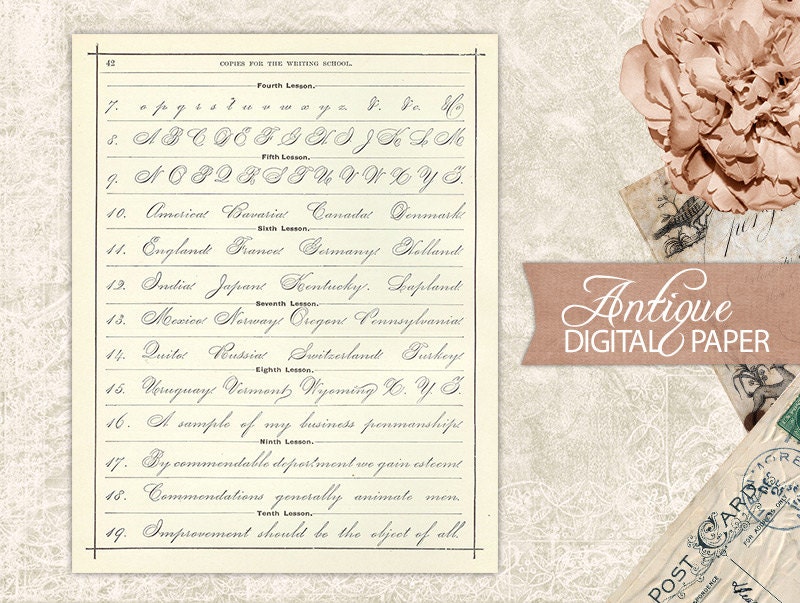 42 COPIES FOR THE WRITING SCHOOL.
Fourth Lesson.
7. o p q r s t u v w x y z &. &c. &Co
8. A B C D E F G H I J K L M
Fifth Lesson.
9. N O P Q R S T U V W X Y Z.
10. America Bavaria Canada Denmark
Sixth Lesson.
11. England France Germany Holland
12. India Japan Kentucky. Lapland
Seventh Lesson.
13. Mexico Norway Oregon Pennsylvania
14. Quito Russia Switzerland Turkey
Eighth Lesson.
15. Uruguay Vermont Wyoming X. Y. Z.
16. A sample of my business penmanship
Ninth Lesson.
17. By commendable deportment we gain esteem
18. Commendations generally animate men.
Tenth Lesson.
19. Improvement should be the object of all.
Antique
DIGITAL PAPER
POST CARD